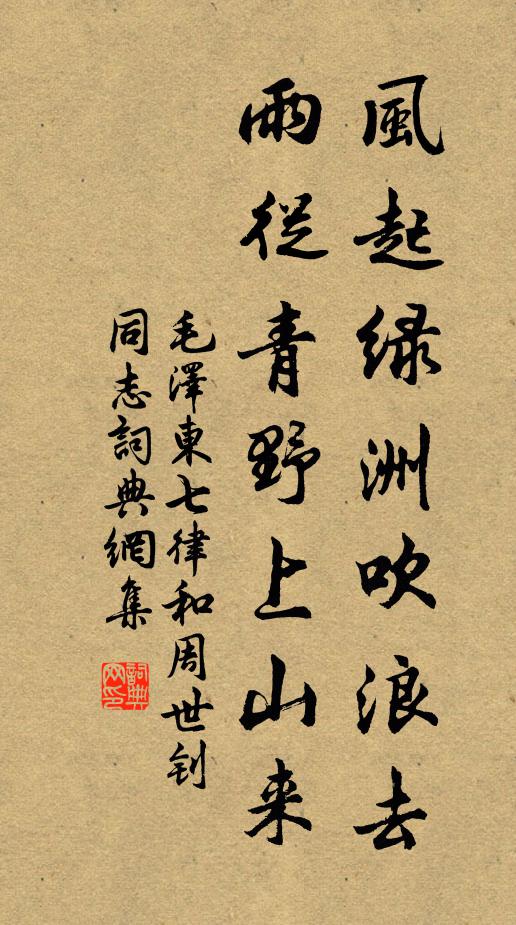 風起绿洲吹浪去
雨從青野上山来
毛澤東七律和周世钊
同志詞典網集
詞典網印